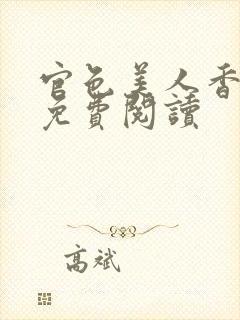 官色美人香
免費閱讀
高斌